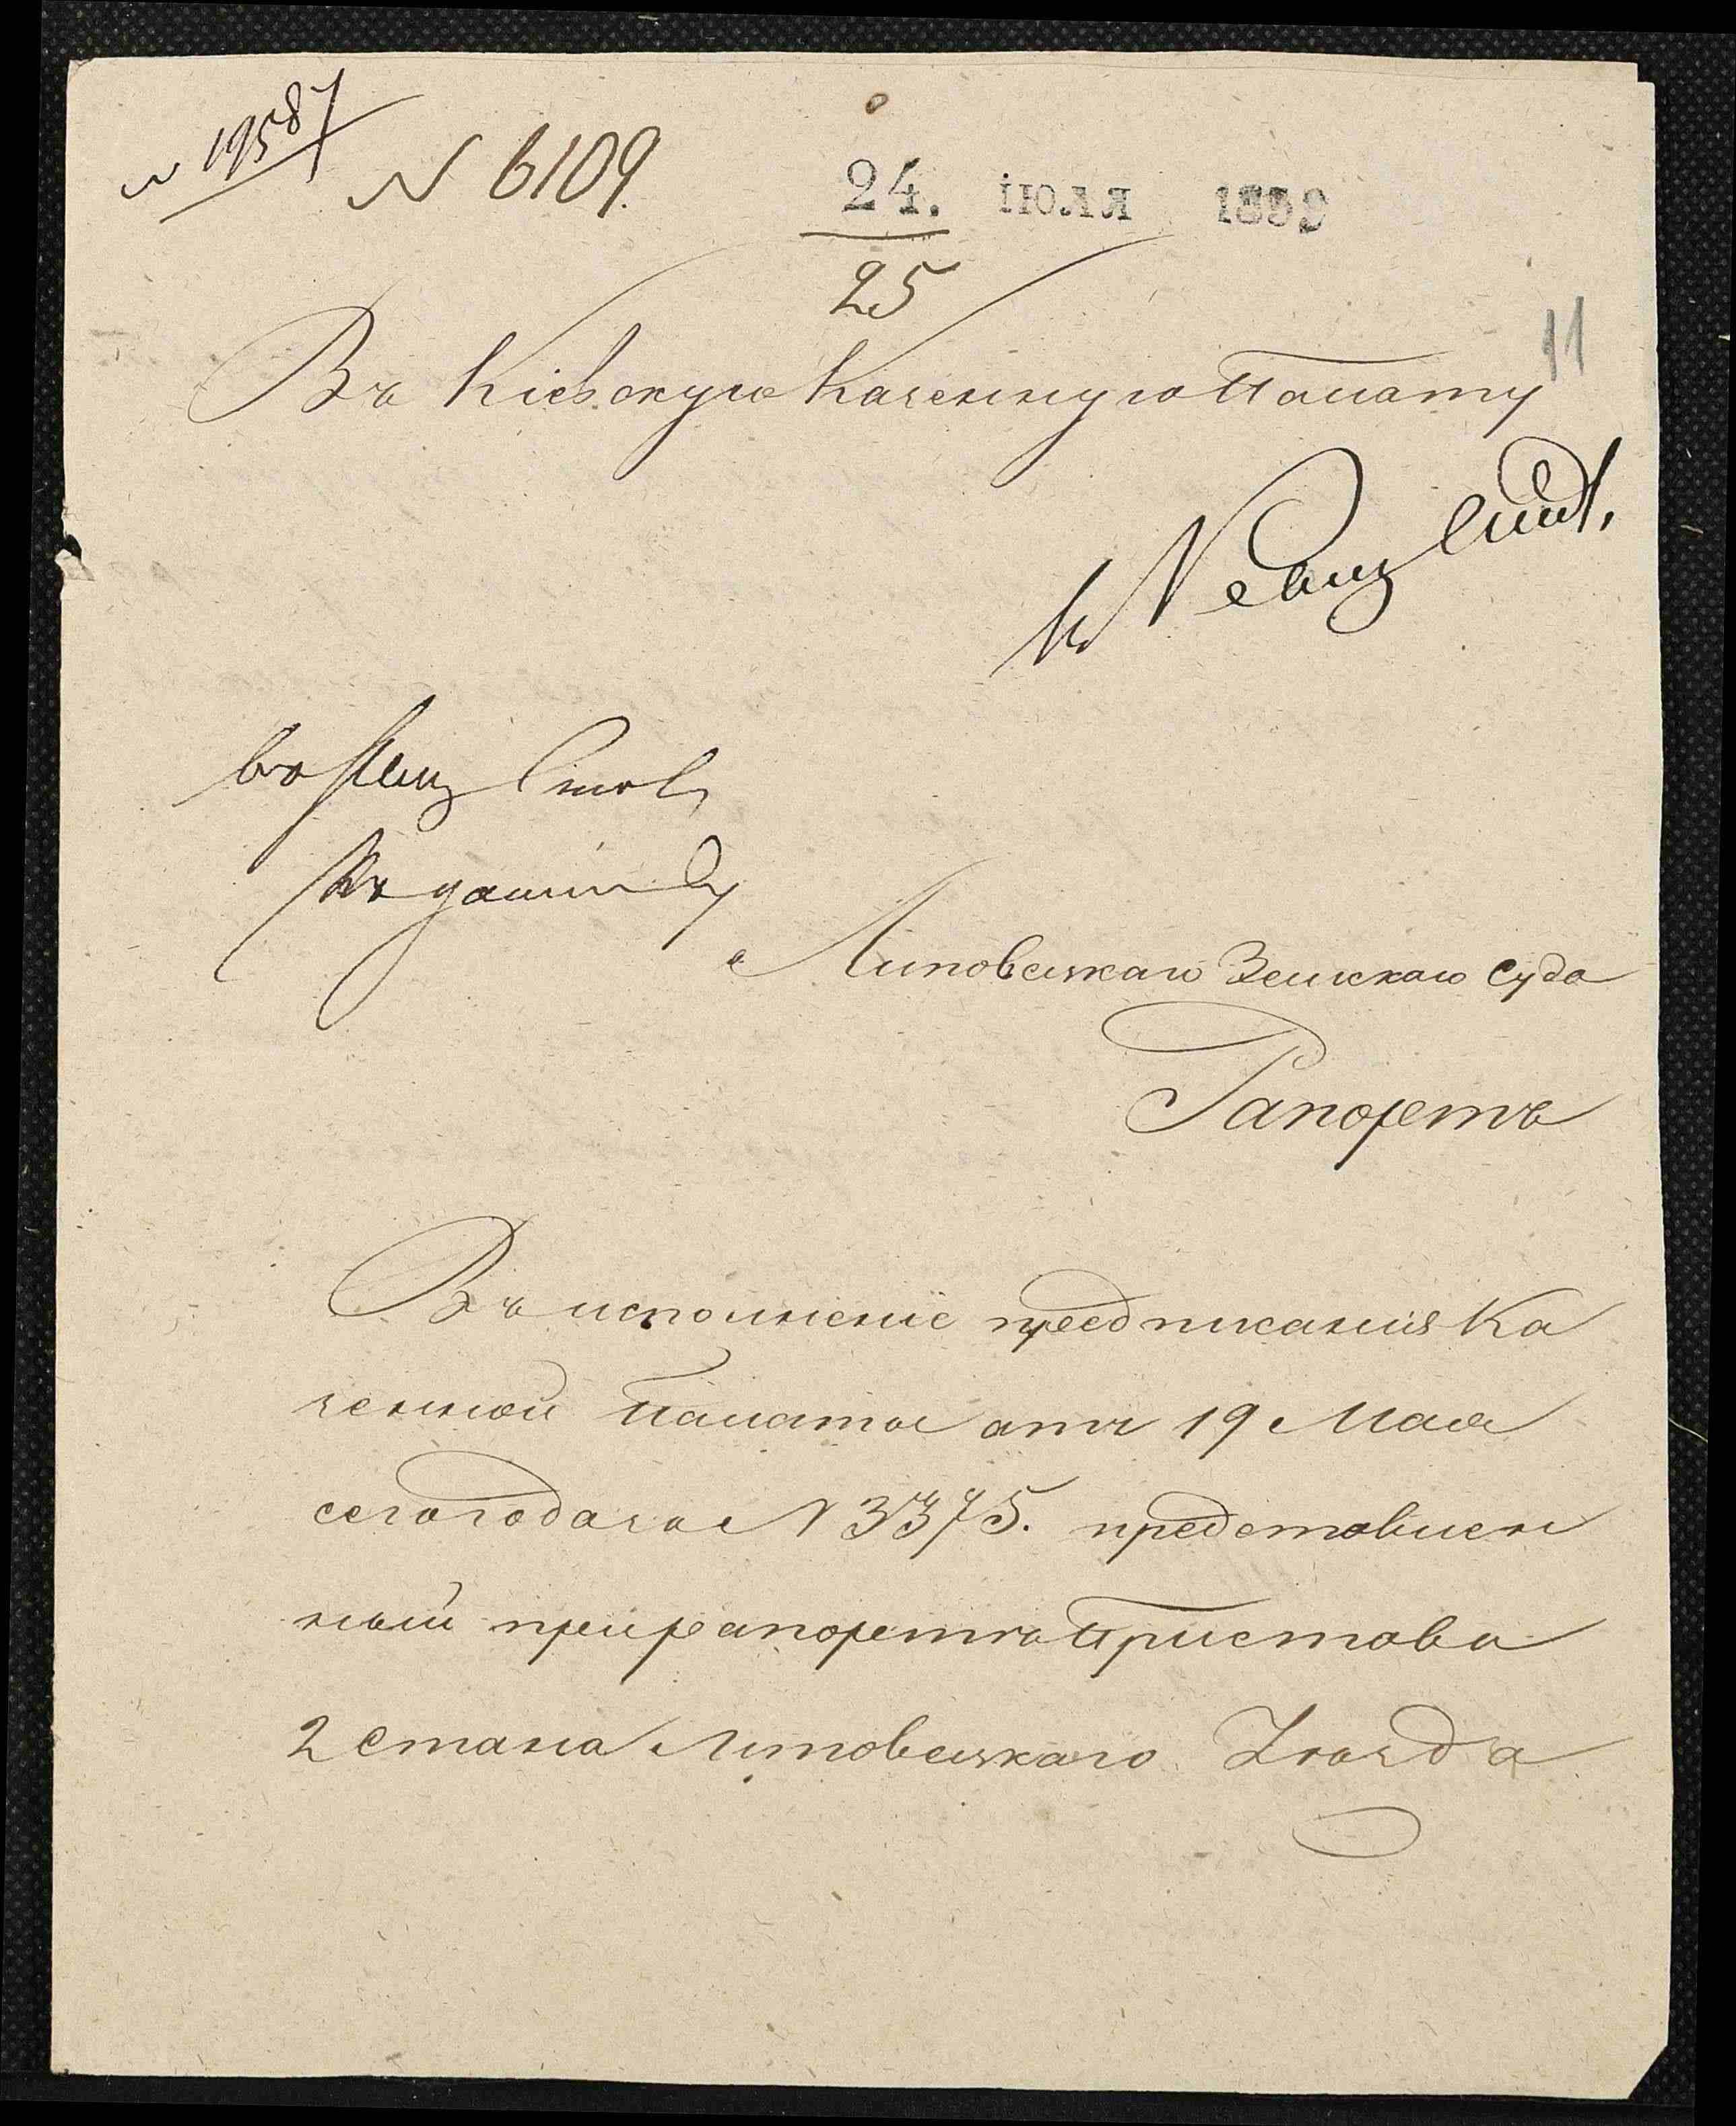 N 19587
N 6109
24. іюля 1839
25
11
Въ Кіевскую Казенную Палату
Къ Ревиз
Во Ревиз Стол
Липовецкаго Земскаго Суда
Рапортъ
Въ исполненіе предписанія Ка
зенной Палаты отъ 19 Мая
сего года за N 3375. представлен
ный при рапортѣ Пристава
2 стана Липовецкаго Уѣзда